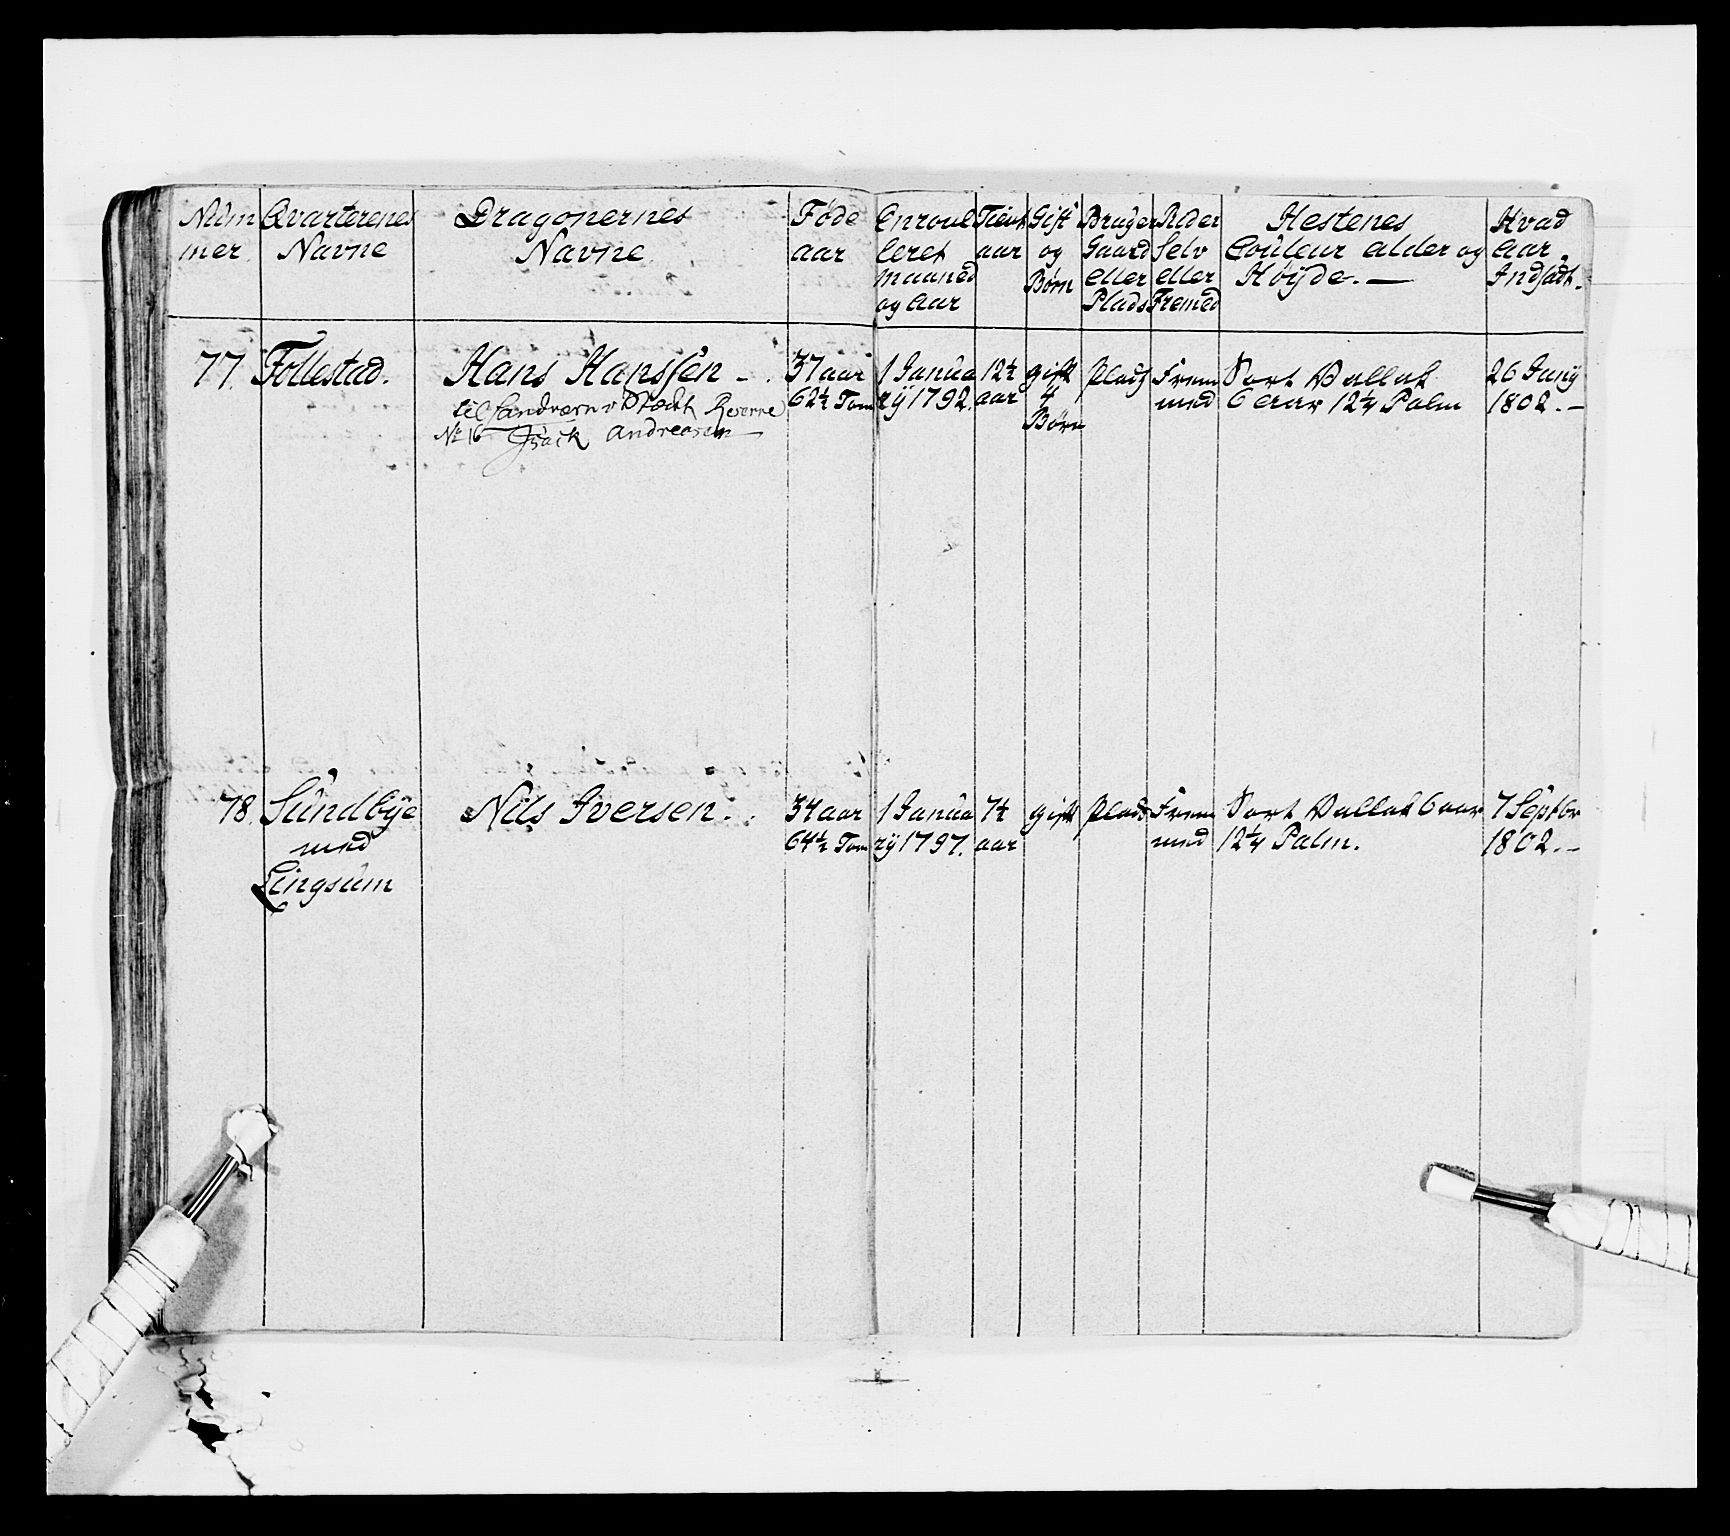 Num
mer
Qvarterenes
Navne
Dragonernes
Navne
Føde
aar
Enroul
leret
Maaned
og Aar
Tient
aar
Gift
og
Børn
Bruger
Gaard
eller
Plads
Rider
Selv
eller
Fremed
Hestenes
Couleur alder og
Høÿde. —
Hvad
Aar
Indsadt.
77.
Follestad.
Hans Hanssen - .
til Landværn v Stædt Reserve
No 16 Isack Andreasen —
37 aar
62½ Tom
1 Janua
rÿ 1792.
12½
aar
gift
4
Børn
Plads
Frem
med
Sort Vallak
6 aar 12¼ Palm
26 Junÿ
1802. -
78
Sundbÿe
med
Lingsum
Nils Iversen. .
34 aar
64½ Tom
1 Janua
rÿ 1797.
7½
aar
gift
Plads
Frem
med
Sort Vallak 6 aar
12¼ Palm.
7 Septbr
1802. -